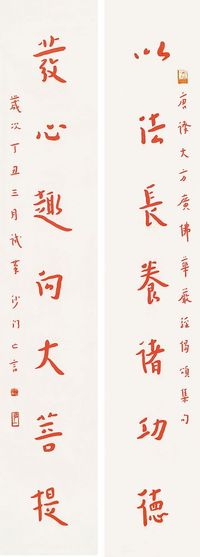 以法長養諸功德
唐譯大方廣佛華嚴經偈頌集句
發心趣向大菩提
歲次丁丑三月
沙門一音